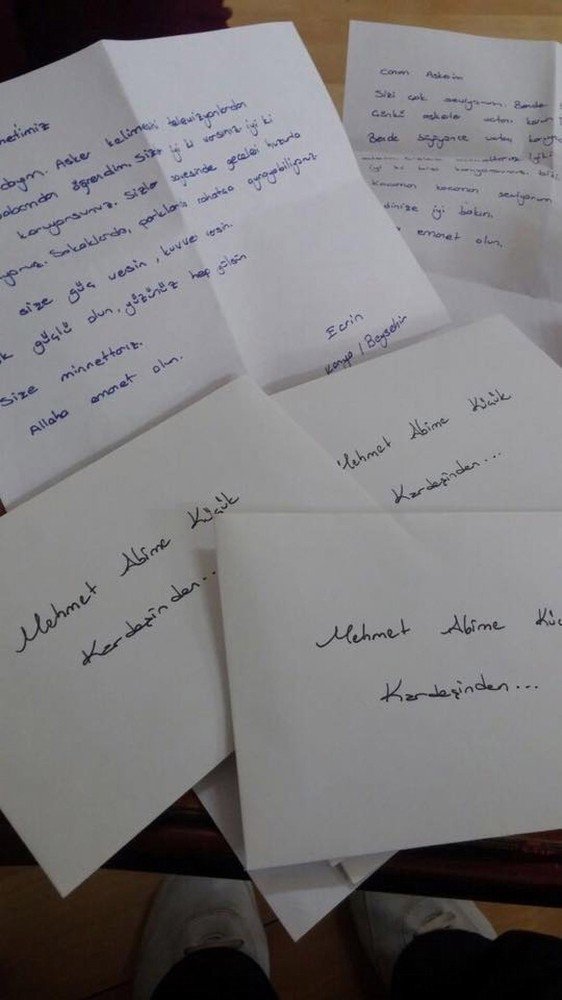 Asker kelimesini televizyonlardan
öğrendim. Sizler iyi ki varsınız iyi ki
koruyorsunuz. Sizler sayesinde geceleri huzurla
Sokaklarda, parklarda rahatça oynayabiliyoruz.
size güç versin, kuvvet versin.
güçlü olun, yüzünüz hep gülsün
Size minnettarız.
Allaha emanet olun.
Ecrin
Konya / Beyşehir
Canım Askerim
Sizi çok seviyorum. Bende
Çünkü askerler vatanı korur
Bende büyüyünce vatanı
iyi ki bizi koruyorsunuz.
kocaman kocaman seviyorum
iyi bakın.
emanet olun.
Mehmet Abime Küçük
Kardeşinden...
Mehmet Abime Küçük
Kardeşinden...
Mehmet Abime Küç
Kardeşinden...